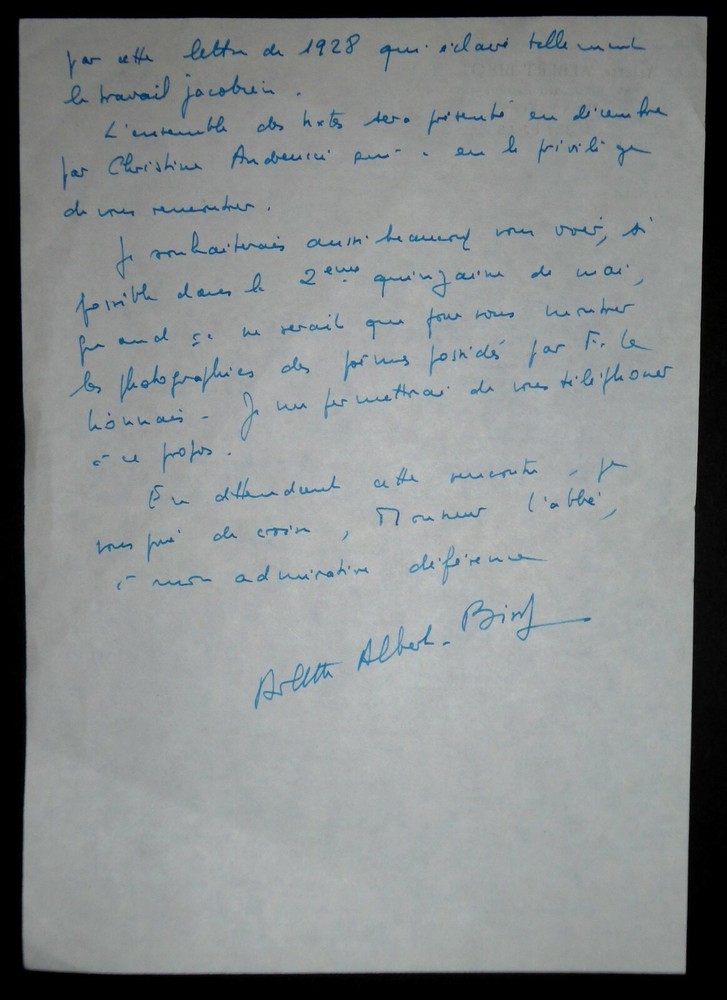 par cette lettre de 1928 qui éclaire tellement
le travail jacobien.
L'ensemble des textes sera présenté en décembre
par Christine Andreucci qui a eu le privilège
de vous rencontrer.
Je souhaiterais aussi beaucoup vous voir, si
possible dans la 2ème quinzaine de mai,
quand ce ne serait que pour vous montrer
les photographies des poèmes possédés par F. Le
Lionnais - Je me permettrai de vous téléphoner
à ce propos.
En attendant cette rencontre, je
vous prie de croire, Monsieur l'abbé,
à mon admirative déférence
Arlette Albert-Birot